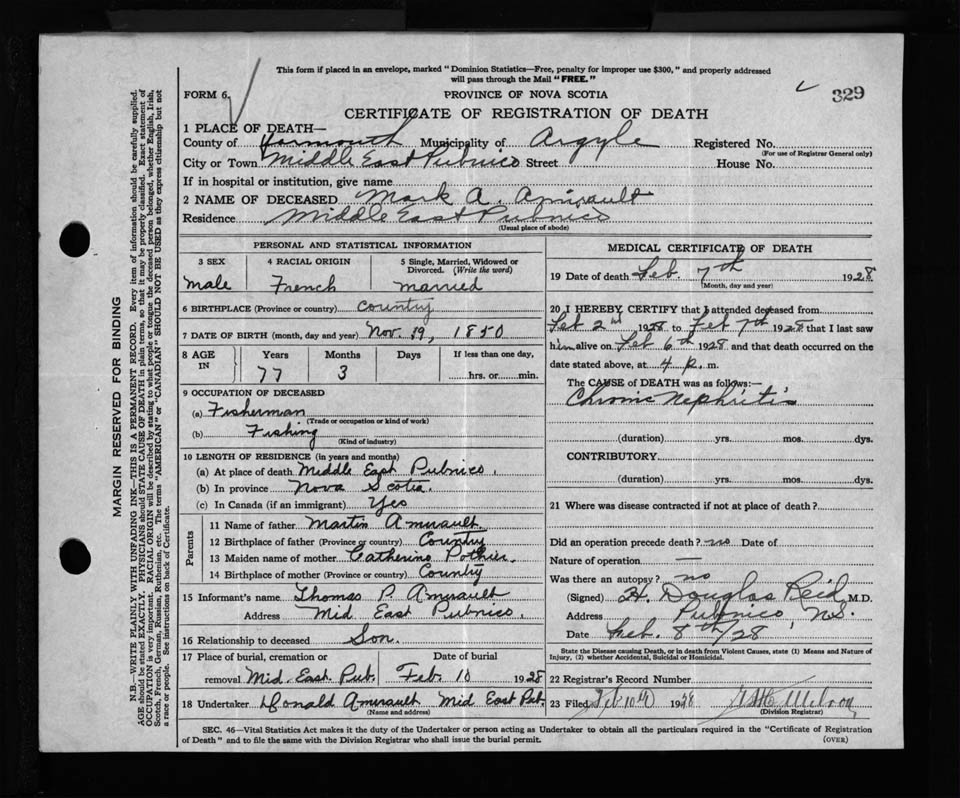 This form if placed in an envelope, marked "Dominion Statistics—Free, penalty for improper use $300," and properly addressed
will pass through the Mail "FREE."
FORM 6.
PROVINCE OF NOVA SCOTIA
329
CERTIFICATE OF REGISTRATION OF DEATH
1 PLACE OF DEATH—
County of Yarmouth Municipality of Argyle Registered No.
(For use of Registrar General only)
City or Town Middle East Pubnico Street House No.
If in hospital or institution, give name
2 NAME OF DECEASED Mark A. Amirault
Residence Middle East Pubnico
(Usual place of abode)
PERSONAL AND STATISTICAL INFORMATION
3 SEX 4 RACIAL ORIGIN 5 Single, Married, Widowed or Divorced. (Write the word)
male French married
6 BIRTHPLACE (Province or country) Country
7 DATE OF BIRTH (month, day and year) Nov. 1850
8 AGE IN Years Months Days If less than one day,
77 3 hrs. or min.
9 OCCUPATION OF DECEASED
(a) Fisherman
(Trade or occupation or kind of work)
(b) Fishing
(Kind of industry)
10 LENGTH OF RESIDENCE (in years and months)
(a) At place of death Middle East Pubnico.
(b) In province Nova Scotia.
(c) In Canada (if an immigrant) Yes
Parents
11 Name of father Martin Amirault.
12 Birthplace of father (Province or country) Country
13 Maiden name of mother Catherine Pothier
14 Birthplace of mother (Province or country) Country
15 Informant's name Thomas P. Amirault
Address Mid East Pubnico.
16 Relationship to deceased Son.
17 Place of burial, cremation or Date of burial
removal Mid. East. Pub. Feb. 10 1928
18 Undertaker Donald Amirault Mid East Pub.
(Name and address)
MEDICAL CERTIFICATE OF DEATH
19 Date of death Feb. 7th 1928
(Month, day and year)
20 I HEREBY CERTIFY that I attended deceased from
Feb 2nd 1928 to Feb 7th 1928 that I last saw
him alive on Feb 6th 1928 and that death occurred on the
date stated above, at 4 p. m.
The CAUSE of DEATH was as follows:—
Chronic Nephritis
(duration) yrs. mos. dys.
CONTRIBUTORY
(duration) yrs. mos. dys.
21 Where was disease contracted if not at place of death?
Did an operation precede death? no Date of
Nature of operation —
Was there an autopsy? no
(Signed) H. Douglas Reid M.D.
Address Pubnico, N.S.
Date Feb. 8th/28
State the Disease causing Death, or in death from Violent Causes, state (1) Means and Nature of
Injury, (2) whether Accidental, Suicidal or Homicidal.
22 Registrar's Record Number
23 Filed Feb 10th 1928
(Division Registrar)
SEC. 46—Vital Statistics Act makes it the duty of the Undertaker or person acting as Undertaker to obtain all the particulars required in the "Certificate of Registration
of Death" and to file the same with the Division Registrar who shall issue the burial permit.
(OVER)
MARGIN RESERVED FOR BINDING
N.B.—WRITE PLAINLY WITH UNFADING INK—THIS IS A PERMANENT RECORD. Every item of information should be carefully supplied.
AGE should be stated EXACTLY. PHYSICIANS should STATE CAUSE OF DEATH in plain terms, so that it may be properly classified. Exact statement of
OCCUPATION is very important. RACIAL ORIGIN will be described by stating to what people or tongue the deceased person belonged, whether English, Irish,
Scotch, French, German, Russian, Ruthenian, etc. The terms "AMERICAN" or "CANADIAN" SHOULD NOT BE USED as they express citizenship but not
a race or people. See instructions on back of Certificate.